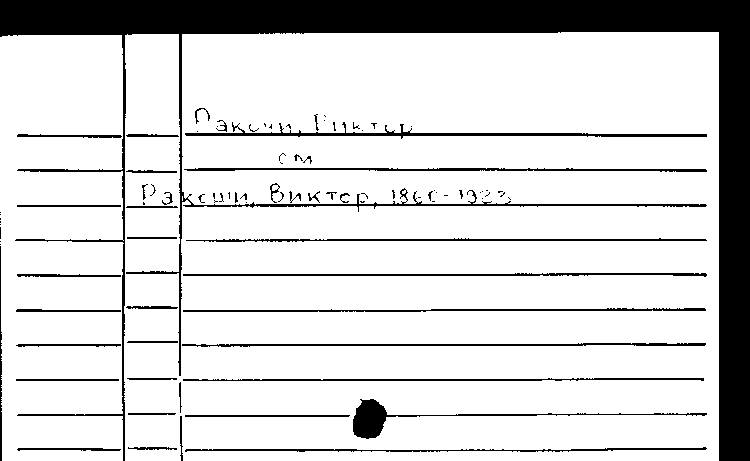 Ракочи, Виктор
см
Ракоши, Виктор, 1860-1923